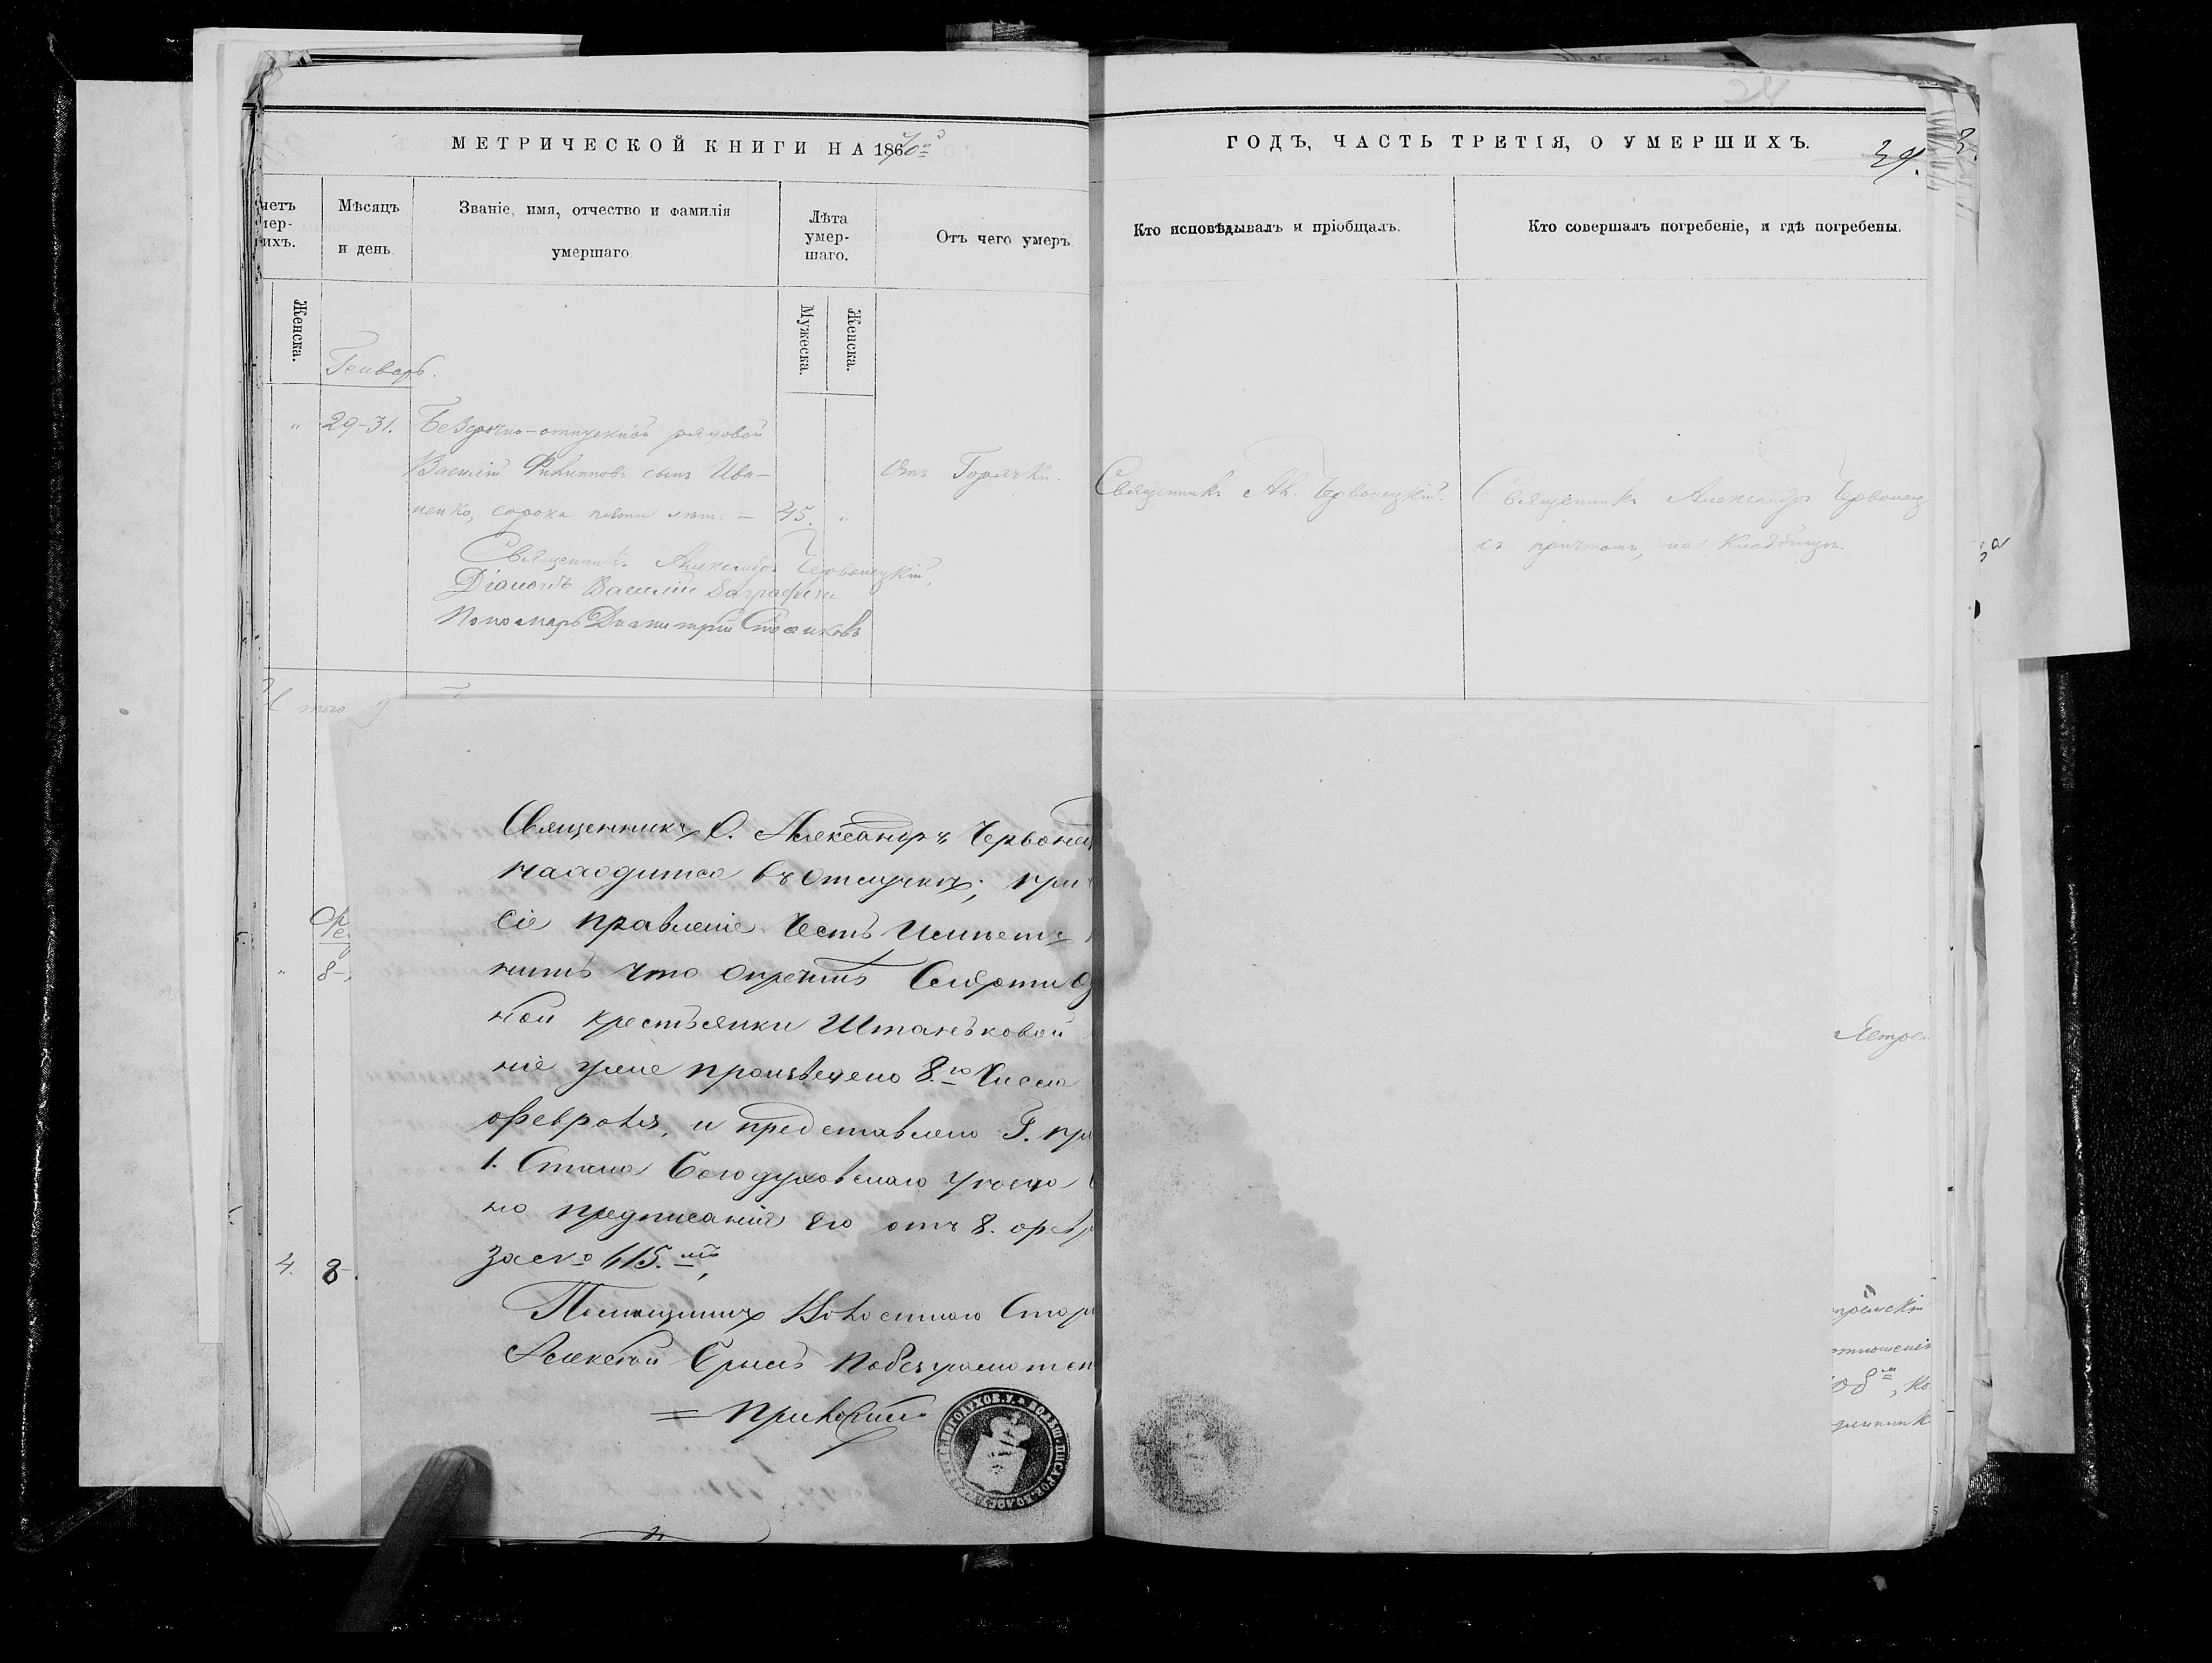 МЕТРИЧЕСКОЙ КНИГИ НА 1870й
ГОДЪ, ЧАСТЬ ТРЕТІЯ, О УМЕРШИХЪ.
34.
Мѣсяцъ и день.
Званіе, имя, отчество и фамилія умершаго.
Лѣта умер-
шаго.
Отъ чего умеръ.
Кто исповѣдывалъ и пріобщалъ.
Кто совершалъ погребеніе, и гдѣ погребены.
Женска.
Мужеска.
Женска.
Генварь.
" 29-31. Безсрочно-отпускной рядовой
Василій Филипповъ сынъ Ива-
ненко, сорока пяти лѣтъ – 45. "
Отъ Горячки.
Священникъ Ал. Червонецкій.
Священникъ Александръ Червонец
съ причтомъ, на кладбищѣ.
Священникъ Александръ Червонецкій,
Діаконъ Василій
Пономарь Димитрій
того
Священникъ О. Александръ Червонец
находится въ отлучкѣ; при
сіе правленіе честь имѣетъ
нить что
ной крестьянки Штаньковой
ніе уже произведено 8.го числа
февраля, и представлено Г. при
1. Стана Богодуховскаго уѣзда
но предписанія его отъ 8. фев
за № 615.мъ,
Помощникъ Волостнаго Стар
Алексѣй
4. 8-
8-